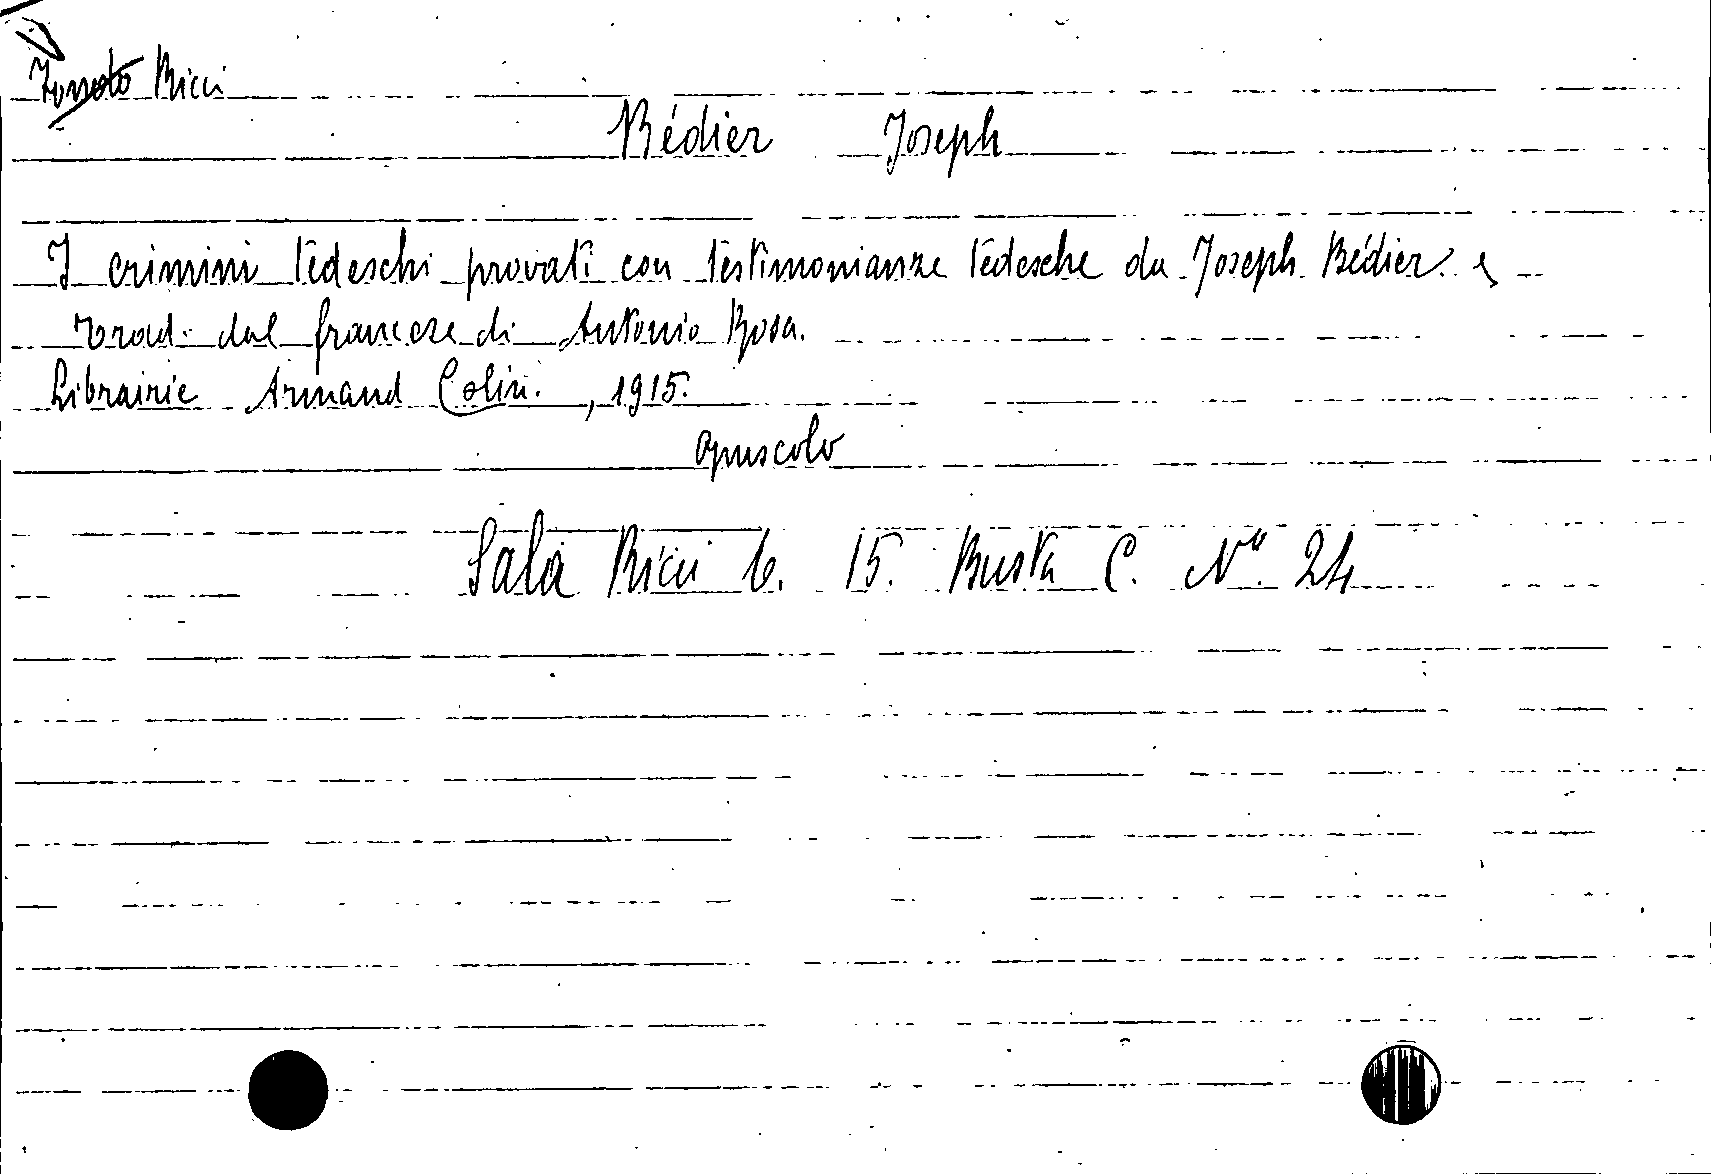 Ricci
Bédier Joseph
I crimini tedeschi provati con testimonianze tedesche da Joseph Bédier.
Trad. dal francese di Antonio Rosa.
Librairie Armand Colin. , 1915.
opuscolo
Sala Ricci 6. 15. Busta C. N° 24